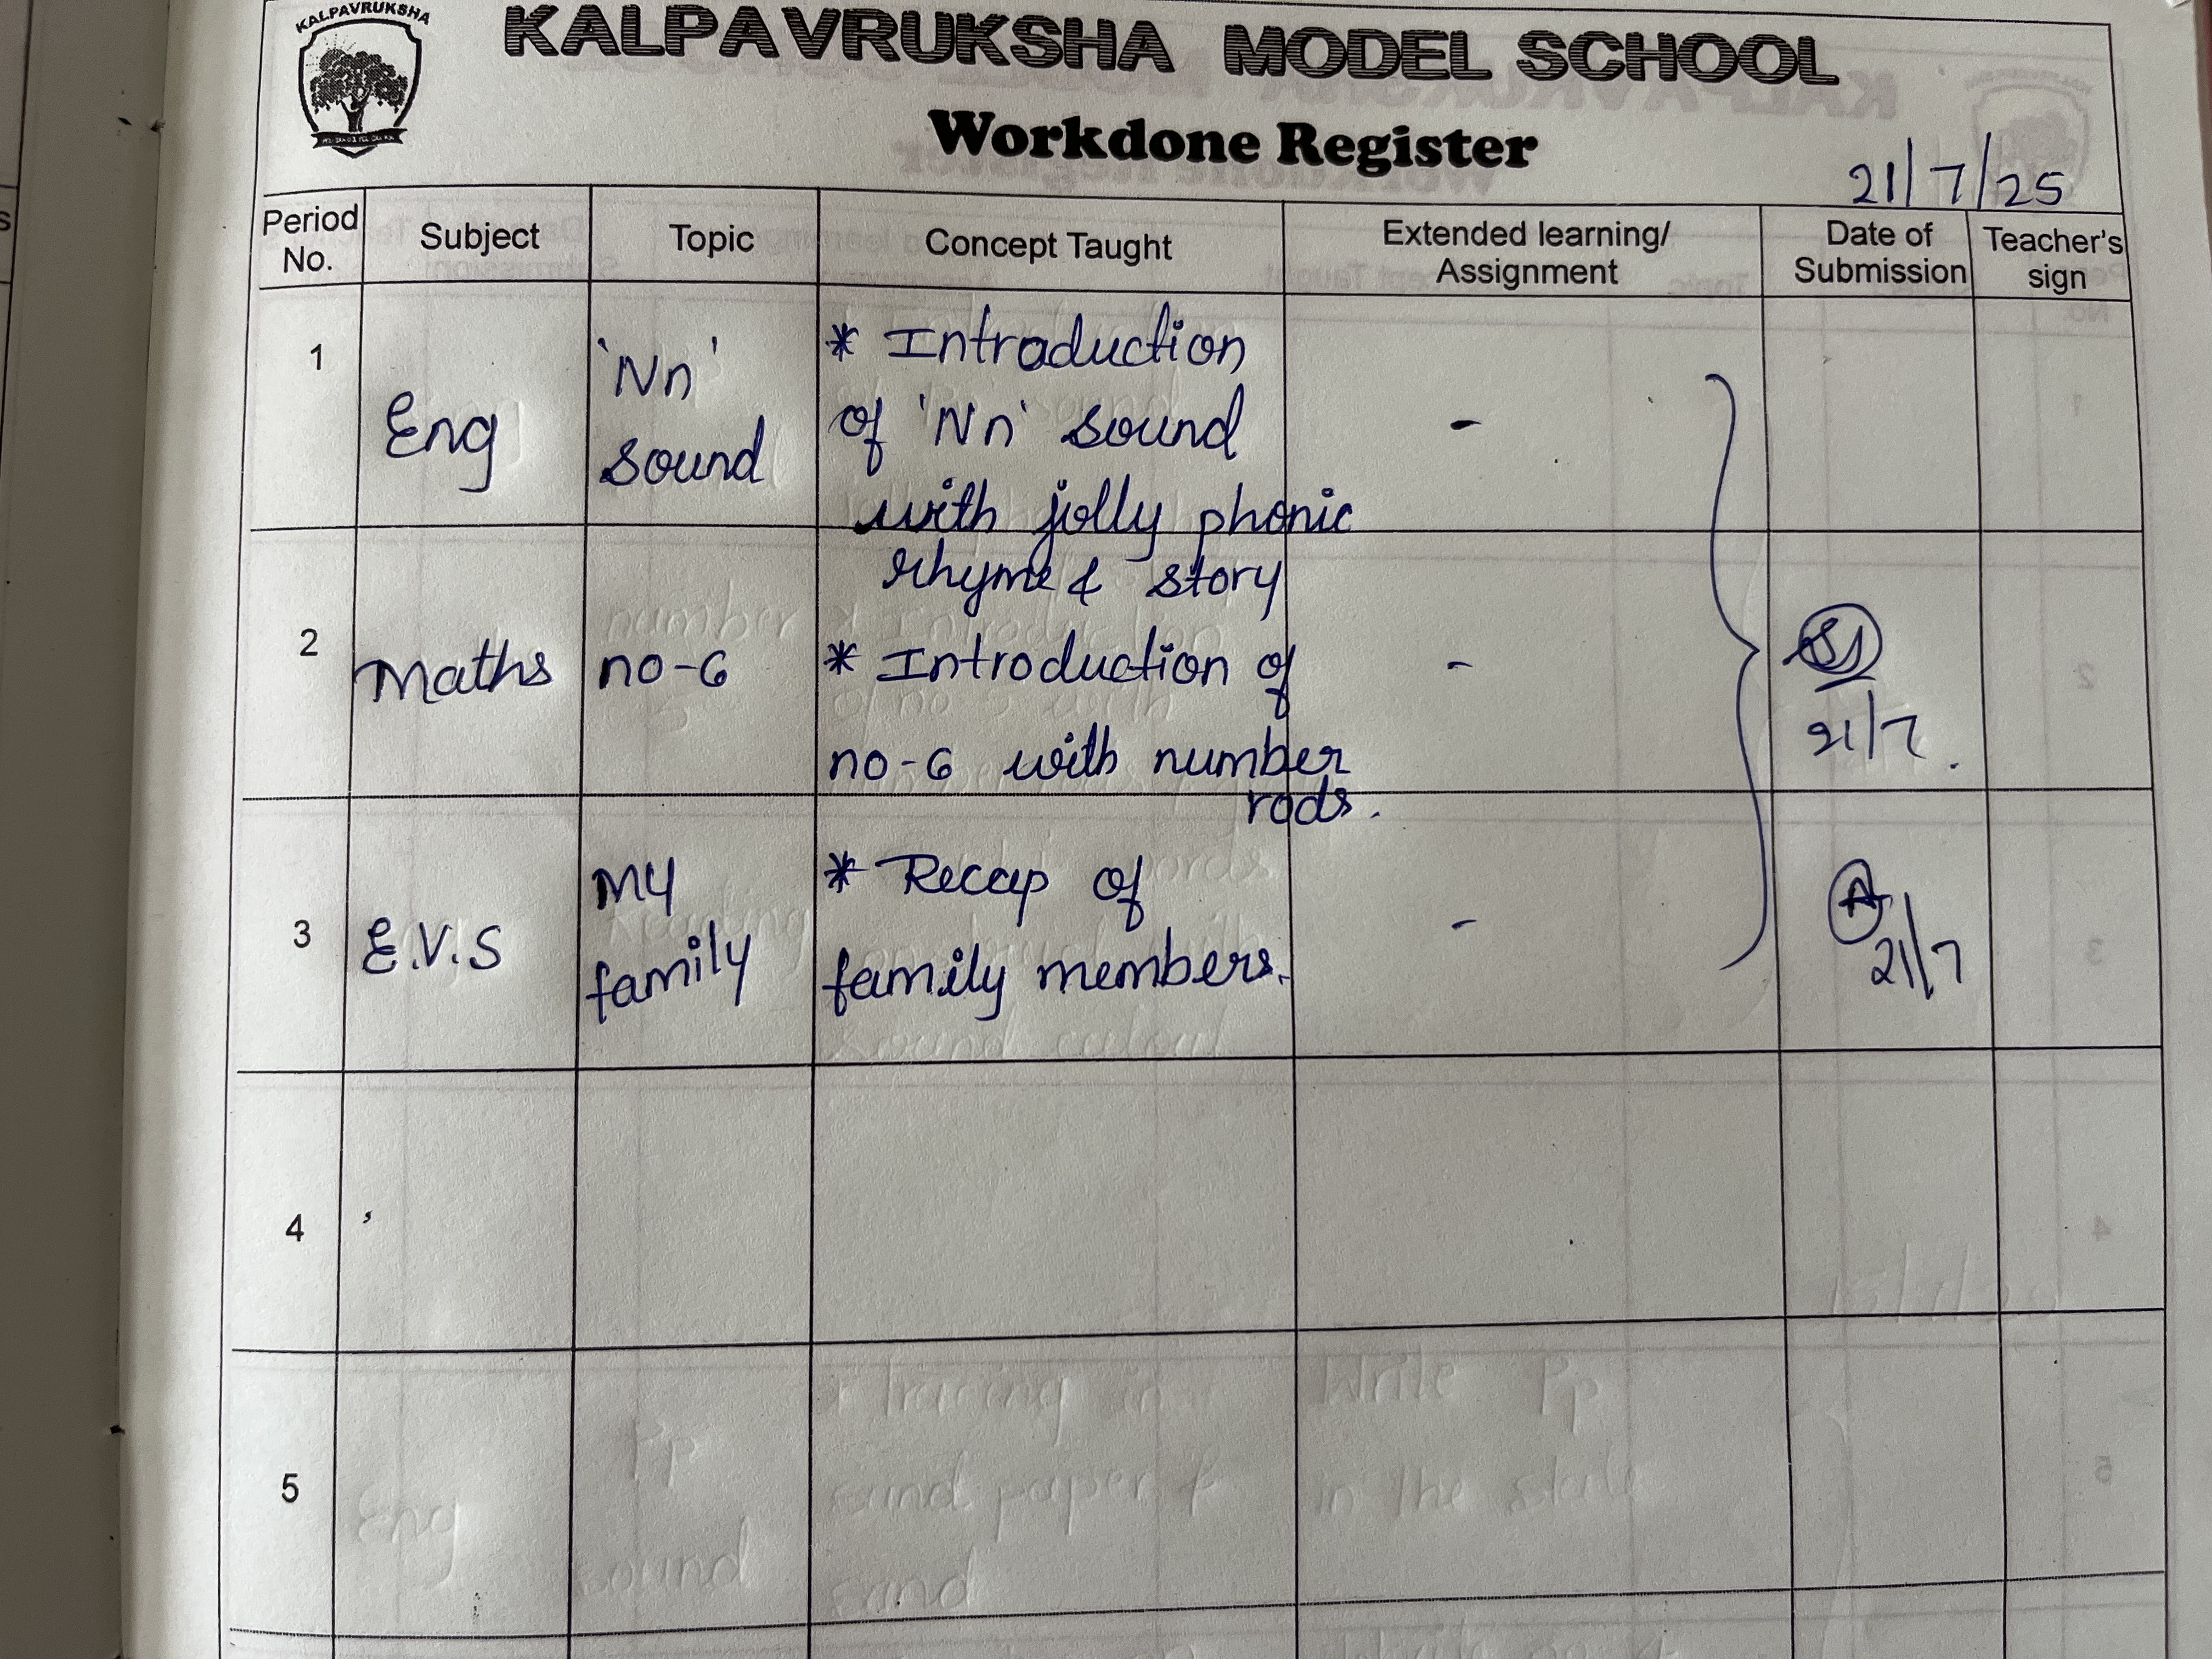 KALPAVRUKSHA
KALPAVRUKSHA MODEL SCHOOL
Workdone Register
21/7/25
Period No. Subject Topic Concept Taught Extended learning/ Assignment Date of Submission Teacher's sign
1 Eng 'Nn' sound * Introduction
of 'Nn' sound -
with jolly phonic
rhyme & story
2 Maths no-6 * Introduction of -
no-6 with number 21/7.
rods.
3 E.V.S My family * Recap of -
family members. 21/7
4
5